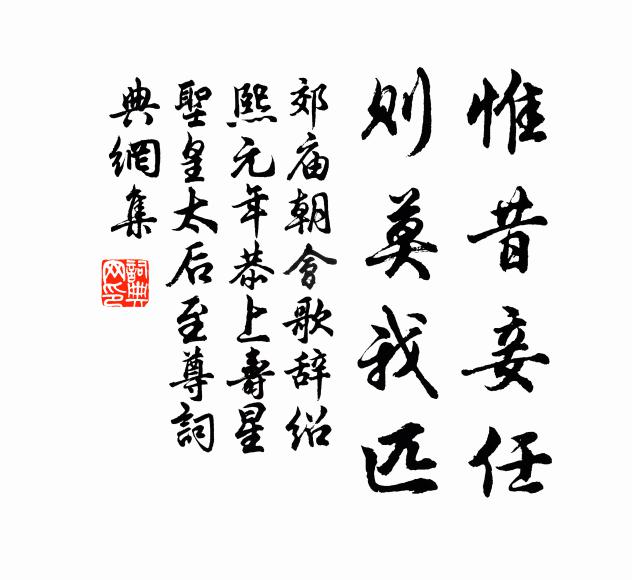 惟昔妾任
则莫我匹
郊庙朝会歌辞绍
熙元年恭上寿星
聖皇太后至尊詞
典網集
詞典网印